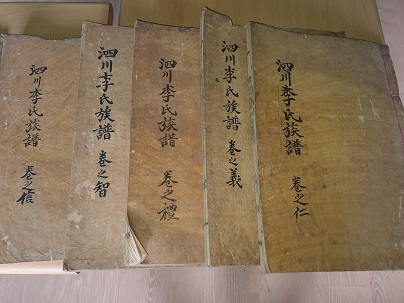 泗川李氏族譜 卷之仁
泗川李氏族譜 卷之義
泗川李氏族譜 卷之禮
泗川李氏族譜 卷之智
泗川李氏族譜 卷之信